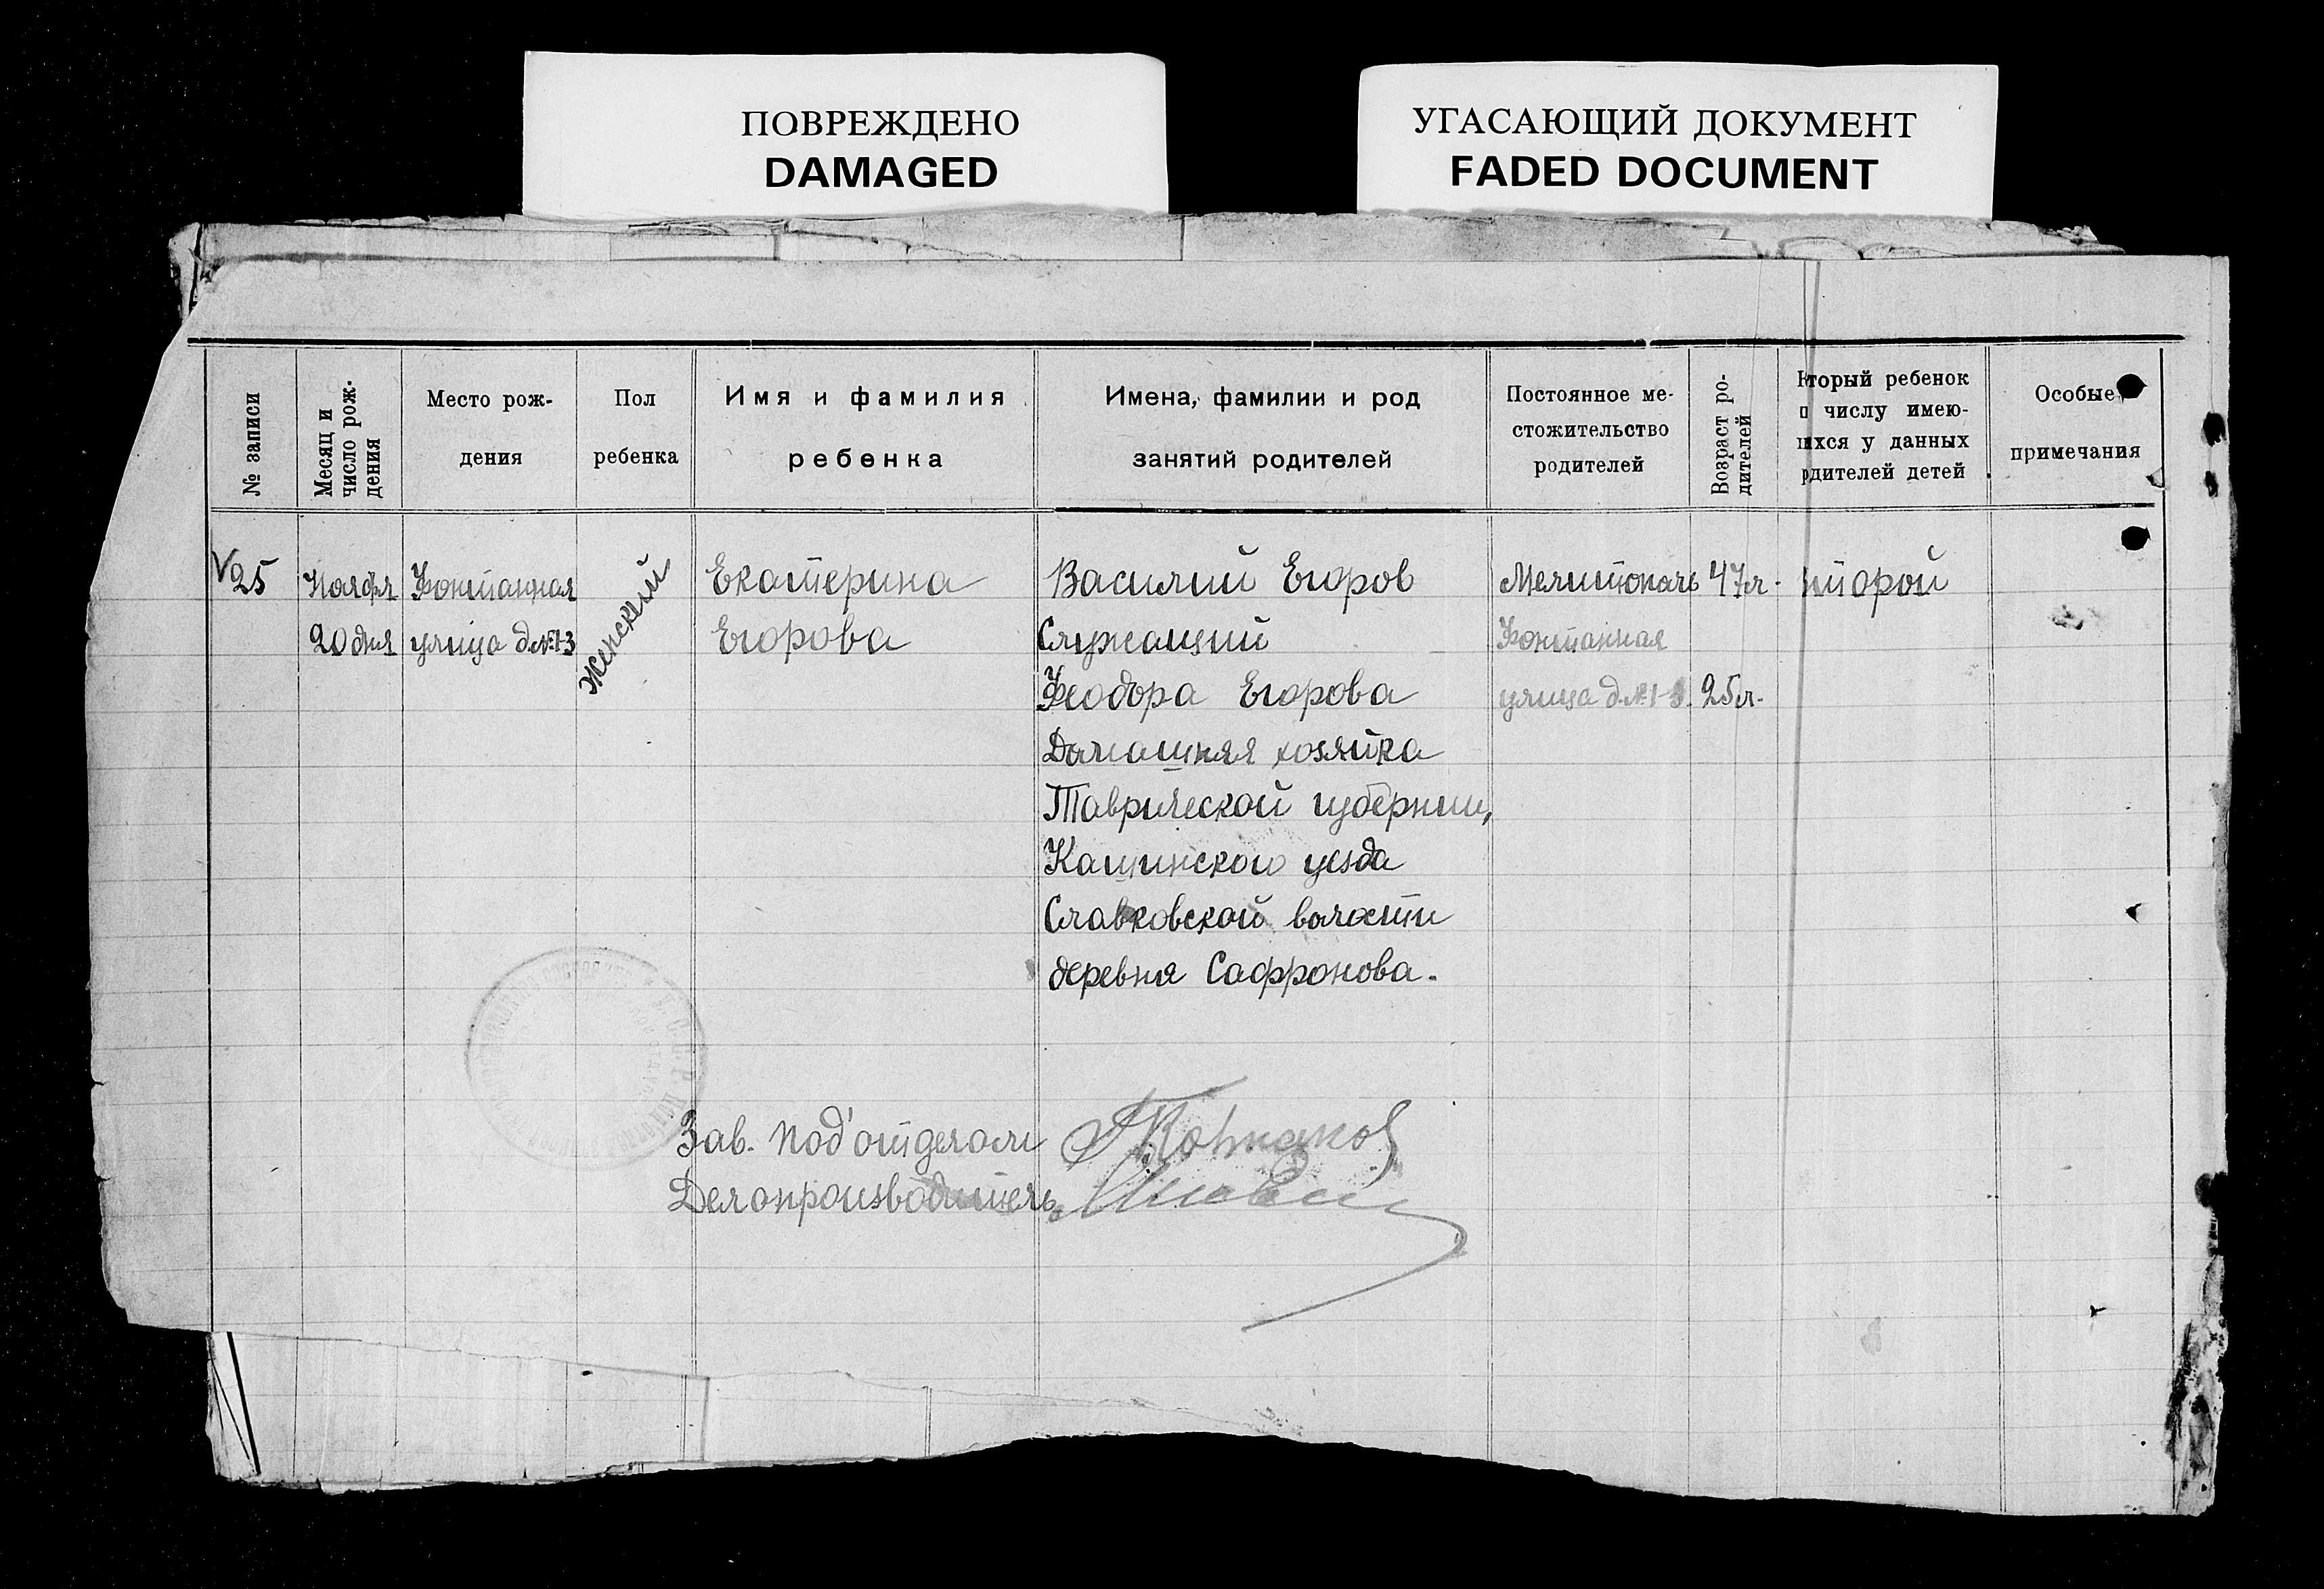 ПОВРЕЖДЕНО
DAMAGED
УГАСАЮЩИЙ ДОКУМЕНТ
FADED DOCUMENT
№ записи
Месяц и
число рож-
дения
Место рож-
дения
Пол
ребенка
Имя и фамилия
ребенка
Имена, фамилии и род
занятий родителей
Постоянное ме-
стожительство
родителей
Возраст ро-
дителей
торый ребенок
числу имею-
хся у данных
дителей детей
Особые
примечания
25
Ноября
20 дня
Фонтанная
улица д№13
женский
Екатерина
Егорова
Василий Егоров
Служащий
Феодора Егорова
Домашняя хозяйка
Таврической губернии,
Кашинского уезда
Славковской волости
деревня Сафронова.
Мелитополь
Фонтанная
улица д.№13.
47л.
25л.
торой
Зав. Под'отделом
Делопроизводитель